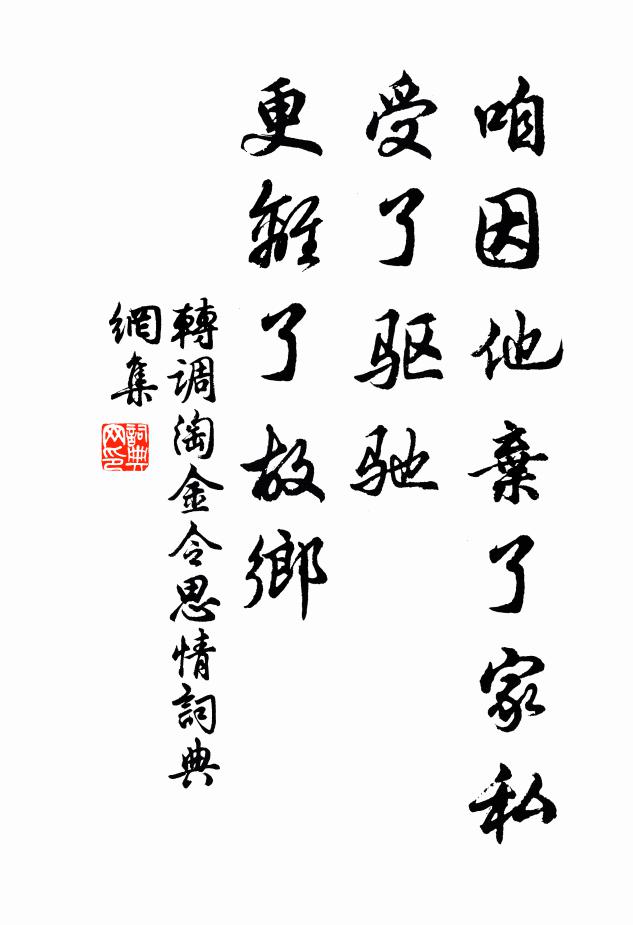 咱因他棄了家私
受了驱驰
更離了故鄉
轉調淘金令思情詞典
網集
詞典
网印